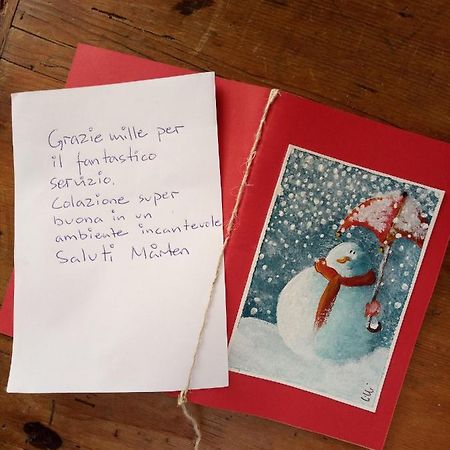 Grazie mille per
il fantastico
servizio.
Colazione super
buona in un
ambiente incantevole
Saluti Mårten